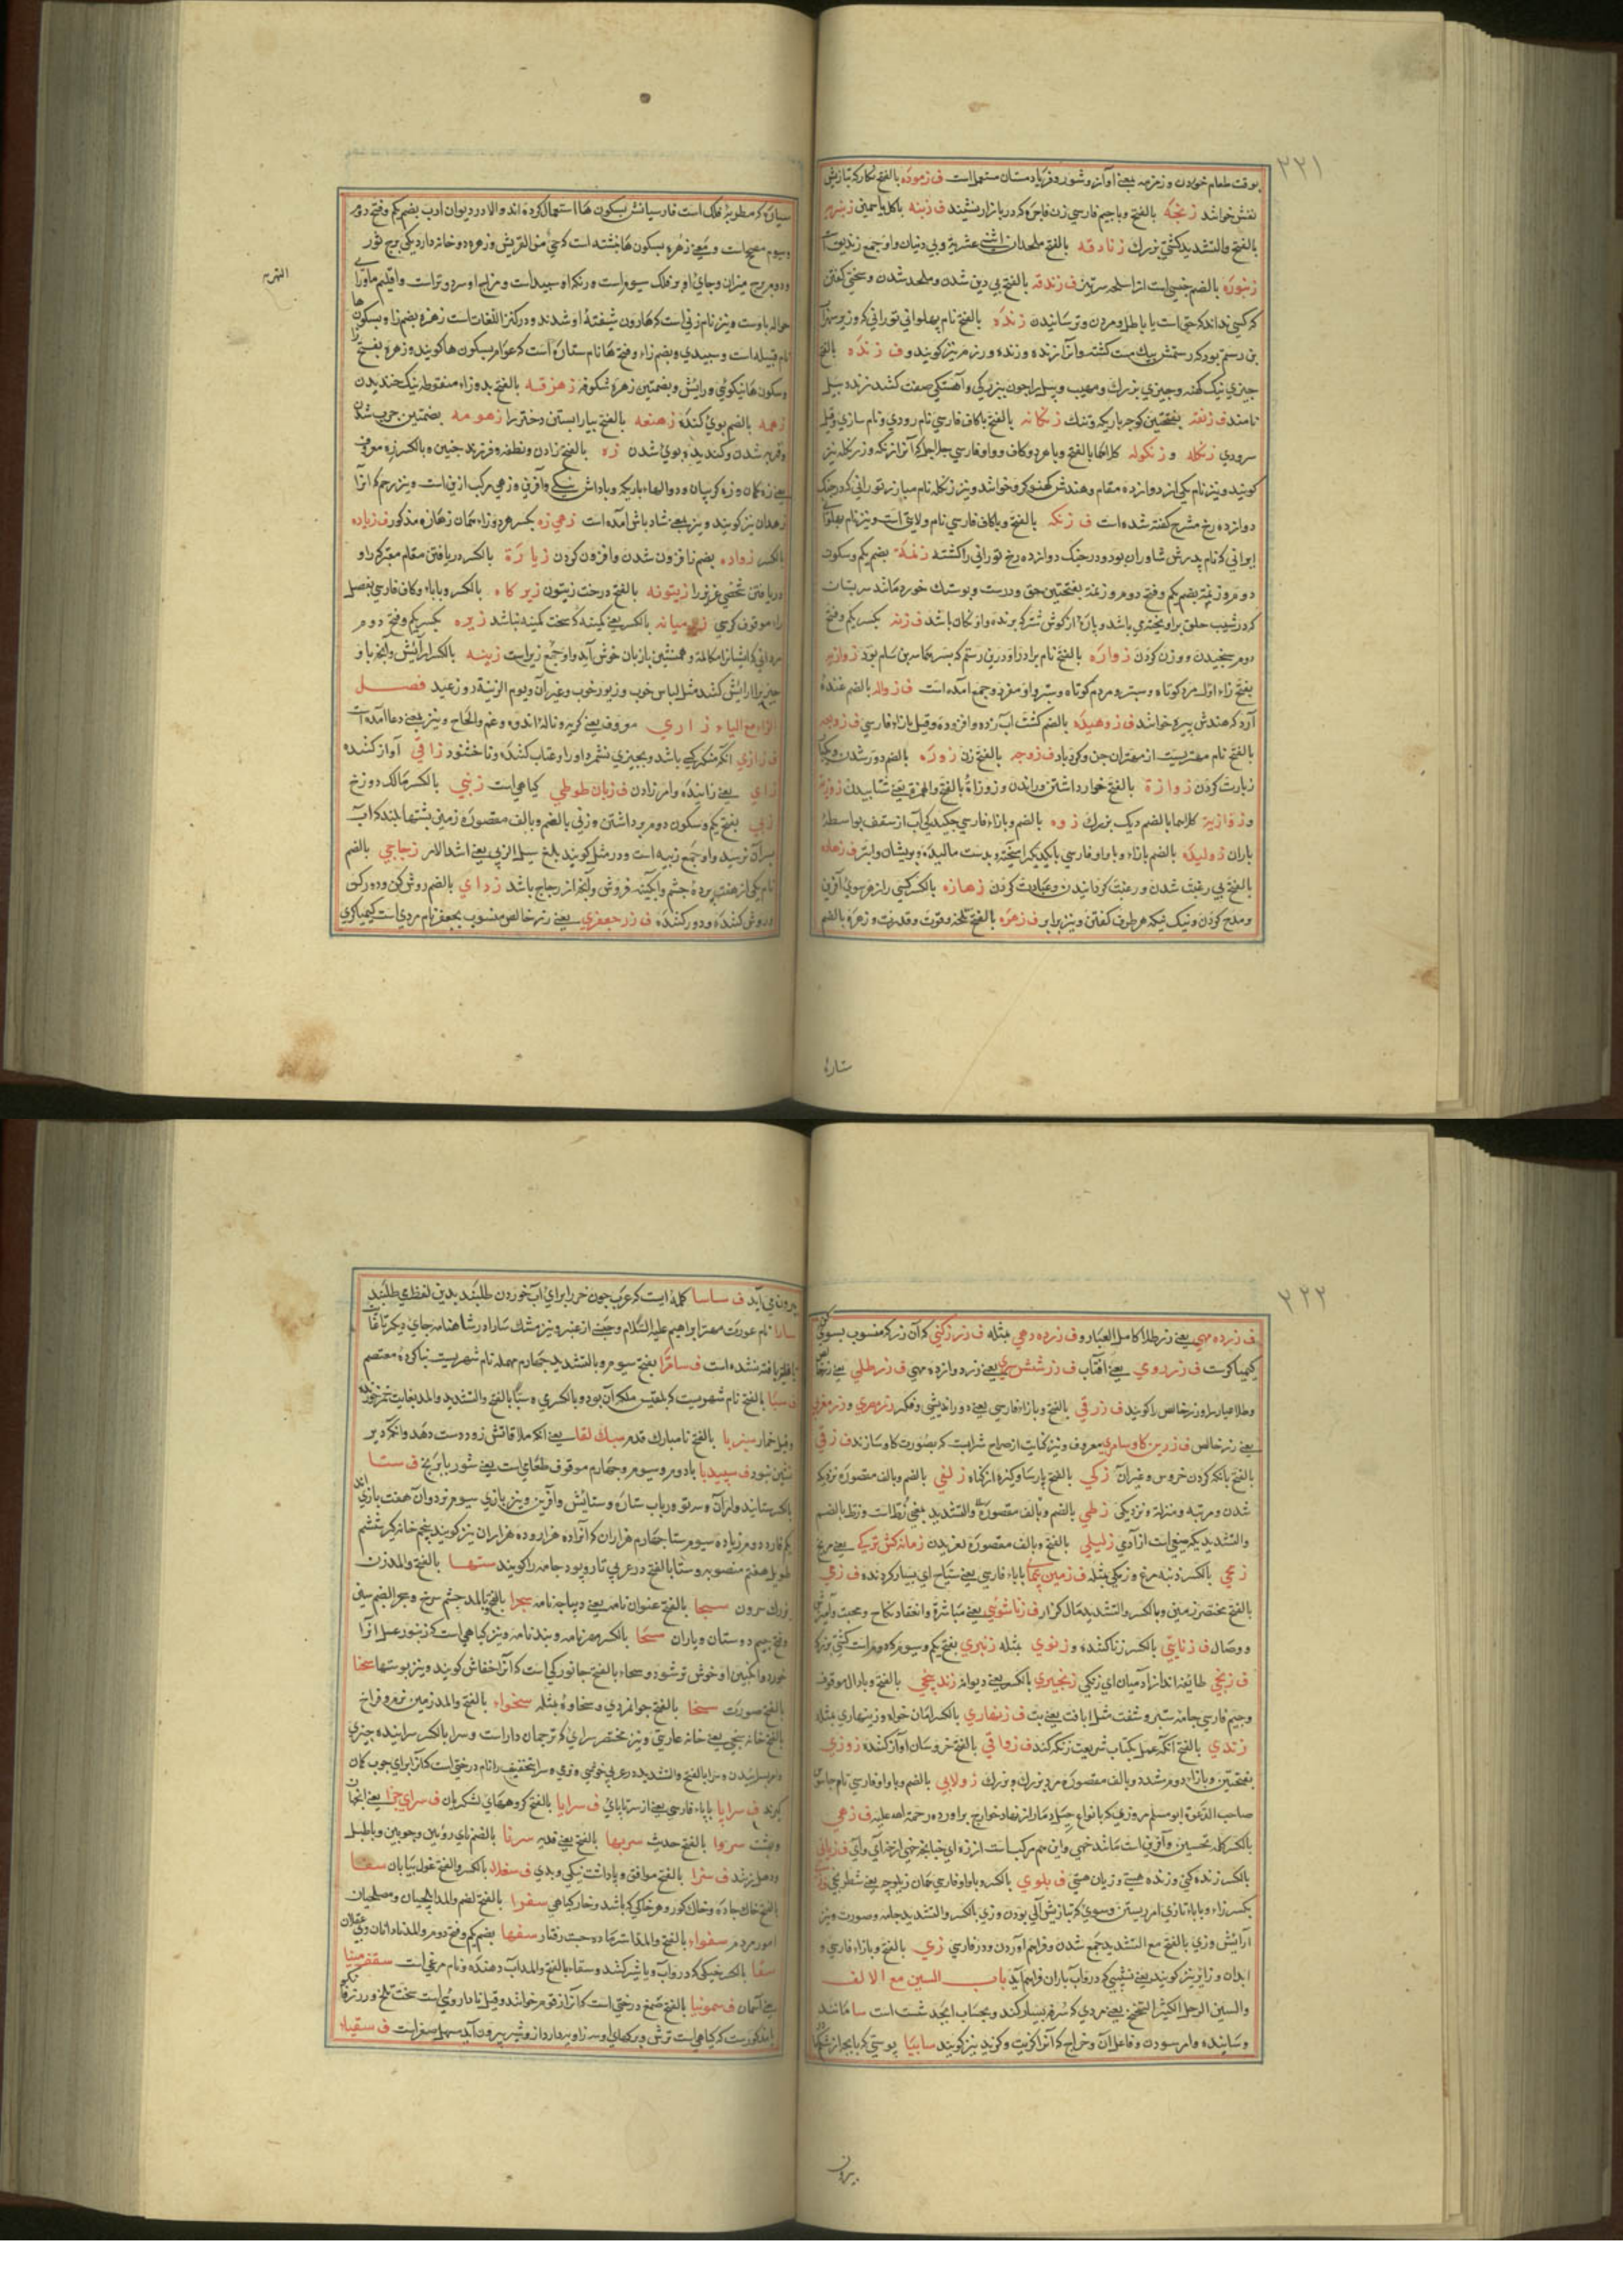 ٢٢١
بوقت طعام خوردن و زمزمه بمعنی آواز و شور و فریاد مستان مستعمل است ف زموده بالفتح نگار که بتازیش
نقش خوانند زنجکه بالفتح و با جیم فارسی زن فاحشه که در بازار نشیند ف زینه با کاف
بالفتح والتشدید کشتی بزرک زنادقه بالفتح ملحدان اثنی عشریه و بی دنیان واو جمع زندیق است
زنبوره بالضم جنسی است از اسلحه سرتیز ف زندقه بالفتح بی دین شدن و ملحد شدن و سخنی گفتن
که کسی نداند که حق است یا باطل و مردن و ترسانیدن زنده بالفتح نام پهلوانی تورانی که وزیر سهراب
بن رستم بود که رستمش بیک مشت کشته و آنرا زنده و زنده رزم نیز کویند و ف زنده بالفتح
چیزی نیک کهنه و چیزی بزرک و مهیب و پیل را چون بزرکی و آهستکی صفت کنند زنده پیل
نامند ف زنقه بفتحتین کوچه باریک و تنک زنکانه بالفتح با کاف فارسی نام رودی و نام سازی و قیل
سرودی زنکله و زنکوله کلاهما بالفتح و با هر دو کاف و واو فارسی جلاجل که آنرا زنکه و زنکله نیز
کویند و نیز نام یکی از دوازده مقام و هندش کهنوکرو خوانند و نیز زنکله نام مبارز تورانی که در جنک
دوازده رخ مشرح کفته شده است ف زنکه بالفتح و با کاف فارسی نام ولایتی است و نیز نام پهلوان
ایرانی که نام پدرش شاوران بود و در جنک دوازده رخ تورانی را کشته زنمة بضم یکم و سکون
دوم و زنمة بضم یکم و فتح دوم و زنمة بفتحتین حق و درست و پوستک خورد مانند سرپستان
که در شیب حلق بز آویخته می باشد و پاره از کوش شتر که بریده واو نکان باشد ف زنه بکسر یکم و فتح
دوم سنجیدن و وزن کردن زواره بالفتح نام برادر زاده رستم که بسر
بفتح زاء اول مرد کوتاه و ستبر و مردم کوتاه و ستبر واو مفرد و جمع آمده است ف زواله بالضم غنده
آرد که هندش پیره خوانند ف زوهیده بالضم کشت آب زده و افزوده و قیل بازاء فارسی ف زوبعه
بالفتح نام مهتریست از مهتران جن و کردباد ف زوجه بالفتح زن زوره بالضم دور شدن
زیارت کردن زوازة بالفتح خوار داشتن و راندن و زوزاة بالفتح والهمزة یعنی شتابیدن
و زوازیة کلاهما بالضم دیک بزرک زوه بالضم و بازاء فارسی چکیدکی آب از سقف بواسطه
باران ژولیده بالضم بازاء و با واو فارسی با یکدیکر آمیخته و بدست مالیده و پریشان و ابتر ف زهاده
بالفتح بی رغبت شدن و رغبت کردانیدن و عبادت کردن زهازه بالکسر کسی را از هر سوی آفرین
و مدح کردن و نیک نیکه هر طرف کفتن و نیز برابر ف زهره بالفتح تلخه و قوت و قدرت و زهره بالضم
ستاره
سیاره که مطربهٔ فلک است فارسیانش بسکون ها استعمال کرده اند والا در دیوان ادب بضم یکم و فتح دوم
وسیوم مصحح است و بمعنی زهره بسکون ها نبشته است کحی من القریش و زهره دو خانه دارد یکی برج ثور
ودوم برج میزان و جای او بر فلک سیوم است و رنک او سپید است و مزاج او سرد و تر است و اقلیم ماوراء
حواله باوست و نیز نام زنی است که هاروت شیفتهٔ او شدند و در کنز اللغات است زهره بضم زا و بسکون ها
نام قبیله است و سپیدی و بضم زاء و فتح ها نام ستاره است که عوام بسکون ها کویند و زهرة بفتح زا
وسکون ها نیکوئی و آرایش و بضمتین زهره شکوفه زهزقه بالفتح بدو زاء منقوطه نیک خندیدن
زهمه بالضم بوی کنده زهنعه بالفتح بیاراستن دختر را زهومه بضمتین چرب شدن
وفربه شدن و کندیده بوی شدن زه بالفتح زادن و نطفه و فرزند چنین و بالکسر زه معروف
یعنی زه کمان و زه کریبان و دوالهاء باریک و پاداش نیکی و آفرین و زهی مرکب ازین است و نیز رحم که آنرا
زهدان نیز کویند و نیز بمعنی شاد باش آمده است زهی زه بکسر هر دو زاء همان زهازه مذکور ف زیاده
بالکسر زواده بضم نا افزون شدن و افزون کردن زیارة بالکسر دریافتن مقام متبرک را و
دریافتن شخصی عزیز را زیتونه بالفتح درخت زیتون زیرکاه بالکسر و با یاء و کاف فارسی بفصل
راء موقوف کرسی زیرمیانه بالکسر یعنی کمینه که سخت کمینه نباشد زیره بکسر یکم و فتح دوم
مردانی که ایشانرا مکالمه و همنشین با زنان خوش آید واو جمع زیر است زینه بالکسر آرایش و آنچه با او
چیز را آرایش کنند مثل لباس خوب و زیور خوب و غیر آن و یوم الزینة روز عید فصل
الزاء مع الیاء زاری موقوف یعنی کریه و نالهٔ اندوه و غم و الحاح و نیز بمعنی دعا آمده است
ف زازی آنکه منکر کسی باشد و بچیزی نشمرد او را و عتاب کننده و ناخشنود زاقی آواز کننده
زای یعنی زاینده و امر زادن ف زبان طوطی کیاهی است زبنی بالکسر مالک دوزخ
زبی بفتح یکم و سکون دوم برداشتن و زبی بالضم و بالف مقصوره زمین پشتهای بلند که آب
بر آن نرسد واو جمع زبیه است و در مثل کویند بلغ سیل الزبی یعنی اشتد الامر زجاجی بالضم
نام یکی از هفت پرده چشم و آبکینه فروش و آنچه از زجاج باشد زدای بالضم روشن کن و دور کن
وروشن کننده و دور کننده ف زر جعفری یعنی زر خالص منسوب بجعفر نام مردی است کیمیاکری
٢٢٢
ف زر ده مهی یعنی زر طلا کامل العیار و ف زر ده دهی مثله ف زر زکنی که آن زر که منسوب بسوی
کیمیاکرست ف زردوی یعنی آفتاب ف زر شش سری یعنی زر دوازده مهی ف زر طلی یعنی زر خالص
وطلا عیار را و زر خالص را کویند ف زرقی بالفتح و بازاء فارسی یعنی دور اندیشی و فکر زر مهری و زر مغربی
یعنی زر خالص ف زرین کاو سامری معروف و نیز کنایت از صراحی شرابست که بصورت کاو سازند ف زقی
بالفتح بانک کردن خروس و غیر آن زکی بالفتح پارسا و پاکیزه از کناه زلفی بالضم و بالف مقصوره نزدیک
شدن و مرتبه و منزله و نزدیکی زطی بالضم و بالف مقصوره والتشدید
والتشدید یکم صنفی است از آدمی زلیلی بالفتح و بالف مقصوره لغزیدن زمانه کش ترکی یعنی مریخ
زمجی بالکسر دنبه مرغ و زمکی مثله ف زمین پیمای با یاء فارسی یعنی سیاح ای بسیار کردنده ف زمی
بالفتح مختصر زمین و بالکسر والتشدید مال کزار ف زناشوئی یعنی مباشرة و انعقاد نکاح و محبت و آمیزش
ووصال ف زنایی بالکسر زنا کننده و زنوی مثله زنبری بفتح یکم و سیوم که دو مراست کشتی بزرک
ف زنکی طائفه اند از آدمیان ای زنکی زنجیری بالکسر یعنی دیوانه زند پیچی بالفتح و با دال موقوف
وجیم فارسی جامه ستبر و شفت ف زنهاری بالکسر امان خواه و زینهاری مثله
زندی بالفتح آنکه عمل بکتاب شریعت زنکه کند ف زواقی بالفتح خروسان آواز کننده زوزی
بفتحتین و بازاء دوم مشدد و بالف مقصوره مرد بزرک و بزرک زولابی بالضم و با واو فارسی نام جاسوس
صاحب الدعوة ابو مسلم مروزی که بانواع حیل دمار از نهاد خوارج بر آورده رحمة الله علیه ف زهی
بالکسر کلمه تحسین و آفرین است مانند خهی و این هم مرکب است
بالکسر زنده کنی و زنده هستی و زیان هستی ف بلوی بالکسر و با واو فارسی همان زیلوچه یعنی شطرنجی
بکسر زاء و با یاء تازی امر زیستن
آرایش و زی بالفتح مع التشدید جمع شدن و فراهم آوردن و در فارسی زی بالفتح و بازاء فارسی و
آبدان و زا و نیز کویند یعنی نشیبی که در و آب باران فراهم آید باب السین مع الالف
والسین الرجل الکثیر التخمن یعنی مردی که سرفه بسیار کند و بحساب ابجد شست است سا مانند
وساینده و امر سودن و فاعل آن و خراج که آنرا کزیت و کزید نیز کویند سابیا پوستی که با بچه از شکم
بیرون
بیرون می آید ف ساسا کلمه ایست که عرب چون خر را برای آب خوردن طلبند بدین لفظ می طلبند
سارا نام عورت مهتر ابراهیم علیه السلام و چیزی از عنبر و نیز مشک سارا در شاهنامه جای دیکر
یافته شده است ف سامرا بفتح سیوم و بالتشدید چهارم مهمله نام شهریست بنا کرده معتصم
ف سبا بالفتح نام شهریست که بلقیس ملکه آن بود و بالکسر می و سبا بالفتح والتشدید والمد بغایت خمر خورنده
وقیل خمار سبزپا بالفتح نامبارک قدم سبک لقا یعنی آنکه ملاقاتش زود دست دهد و آنکه دیر
نشین نبود ف سپیدبا با دوم و سیوم و چهارم موقوف طعامی است یعنی شوربا برنج ف ستا
بالکسر ستاینده و امر آن و سه تو و رباب ستاره و ستایش و آفرین و نیز بازی سیوم نرد و آن هفت بازی
یکم فارد دوم زیاده سیوم ستا چهارم هزاران که آنرا ده هزار و ده هزاران نیز کویند پنجم خانه کیر ششم
طویل هفتم منصوبه و ستا بالفتح در عربی تار و پود جامه را کویند ستها بالفتح والمد زن
بزرک سرون سیحا بالفتح عنوان نامه یعنی دیباجه نامه سجرا بالفتح والمد چشم سرخ و سجر بالضم
وفتح جیم دوستان و یاران سحا بالکسر مهر نامه و بند نامه و نیز کیاهی است که زنبور عسل آنرا
خورد و انکبین او خوش تر شود و سحاء بالفتح جانورکی است که آنرا خفاش کویند و نیز پوستها سحنا
بالفتح صورت سخا بالفتح جوانمردی و سخاوة مثله سخواء بالفتح والمد زمین نرم و فراخ
بالفتح خانه سنجی یعنی خانه عاریتی و نیز مختصر سرای که ترجمان دار است و سرا بالکسر سراینده چیزی
وامر سراییدن و سرا بالفتح والتشدید در عربی خوشی و نرمی و سرا بتخفیف را نام درختی است که آنرا برای چوب کمان
کیرند ف سراپا با یاء فارسی یعنی از سر تا پای ف سرایا بالفتح کروههای لشکریان ف سرای جزا یعنی آنجهان
وبهشت سروا بالفتح حدیث سربها بالفتح یعنی فدیه سرنا بالضم نای روئین و چوبین و با طبل
ودهل نزند ف سزا بالفتح موافق و پاداشت نیکی و بدی ف سعلا بالکسر والفتح غول بیابان سفا
بالفتح خاک جاده و خاک کور و هر خاکی که باشد و خار کیاهی سفرا بالفتح لضم والمد ایلچیان و مصلحان
امور مردم سفواء بالفتح والمد استر ماده چست رفتار سفها بضم یکم و فتح دوم والمد نادانان و بی عقلان
سقا بالکسر خیکی که در و آب و یا شیر کنند و سقاء بالفتح والمد آب دهنده و نام مرغی است سقف مینا
یعنی آسمان ف سقمونیا بالفتح صمغ درختی است که آنرا زقوم خوانند و قیل نام داروئی است سخت تلخ
ف سقیا